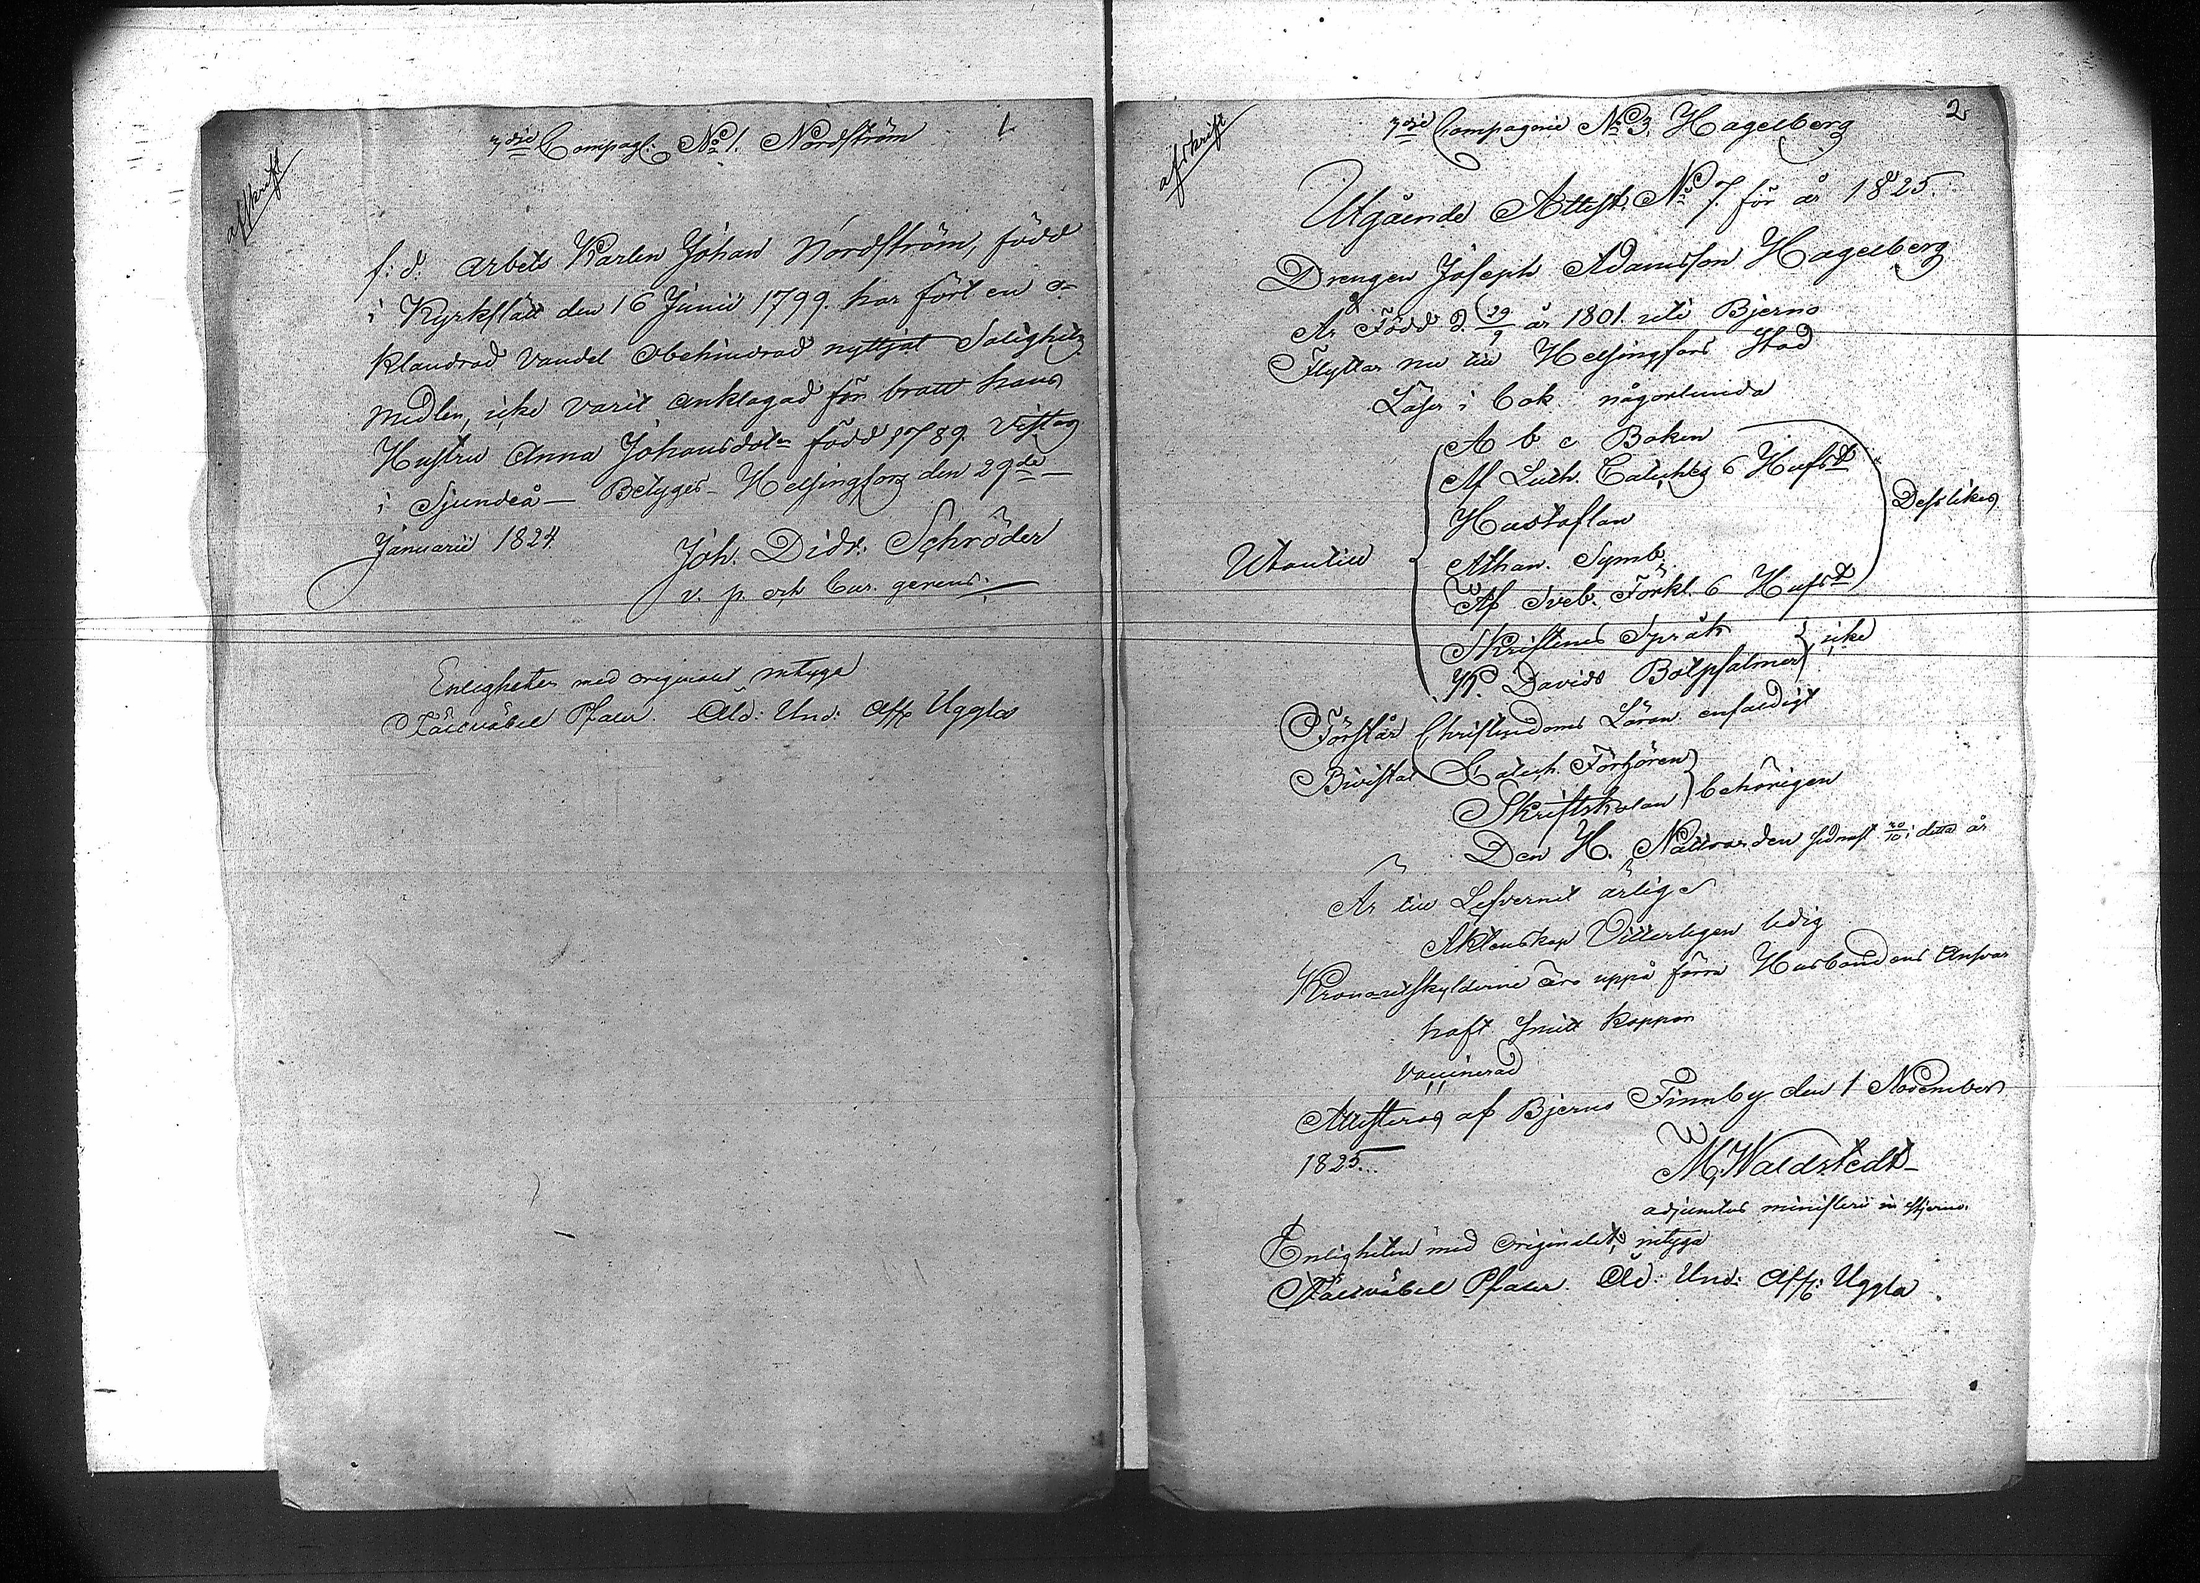 afskrift
3die Compagl: No 1. Nordström
1.
f: d: arbets Karlen Johan Nordström, född
i Kyrkslätt den 16 Junii 1799. har fört en o-
klandrad vandel obehindrad nyttjat Salighetz
medlen, icke varit anklagad för brott hans
Hustru Anna Johansdotr född 1789. Vistas
i Sjundeå — Betygas – Helsingfors den 29de
Januarii 1824.
Joh. Didr: Schröder
v. p. och Cur. gerens.
Enligheten med originalet intyga
Fältväbel Pfaler. Äld: Und: Aff: Uggla
afskrift
3die Compagnie No 3, Hagelberg
2
Utgående Attest. No 7. för år 1825.
Drengen Joseph Adamsson Hagelberg
Är Född d. 29/9 år 1801. uti Bjerno
Flyttar nu till Helsingfors Stad
Läser i bok någorlunda
Utantill
A b c Boken
Af Luth. Catechs 6 Hufst
Hustaflan
Athan. Symb.
Af Sveb. Förkl. 6 Hufst
Desslikes
Skriftenes Språk
K. Davids Botpsalmer
icke
Förstår Christendoms Läran enfaldigt
Bivistat Catech. Förhören
Skriftskolan
behörigen
Den H. Nattvarden sidnst 30/10 i detta år
Är till Lefvernet ärlig
Äktenskap Vitterligen ledig
Kronoutskylderne äro uppå förra Husbondens Ansvar
haft Smitt koppor
Vaccinerad
Attesteras af Bjerno Finnby den 1 November
1825.
M. Waldstedt
adjunctus ministerii in Bjerno.
Enligheten med originalet, intyga
Fältväbel Pfaler. Äld: Und: Aff: Uggla